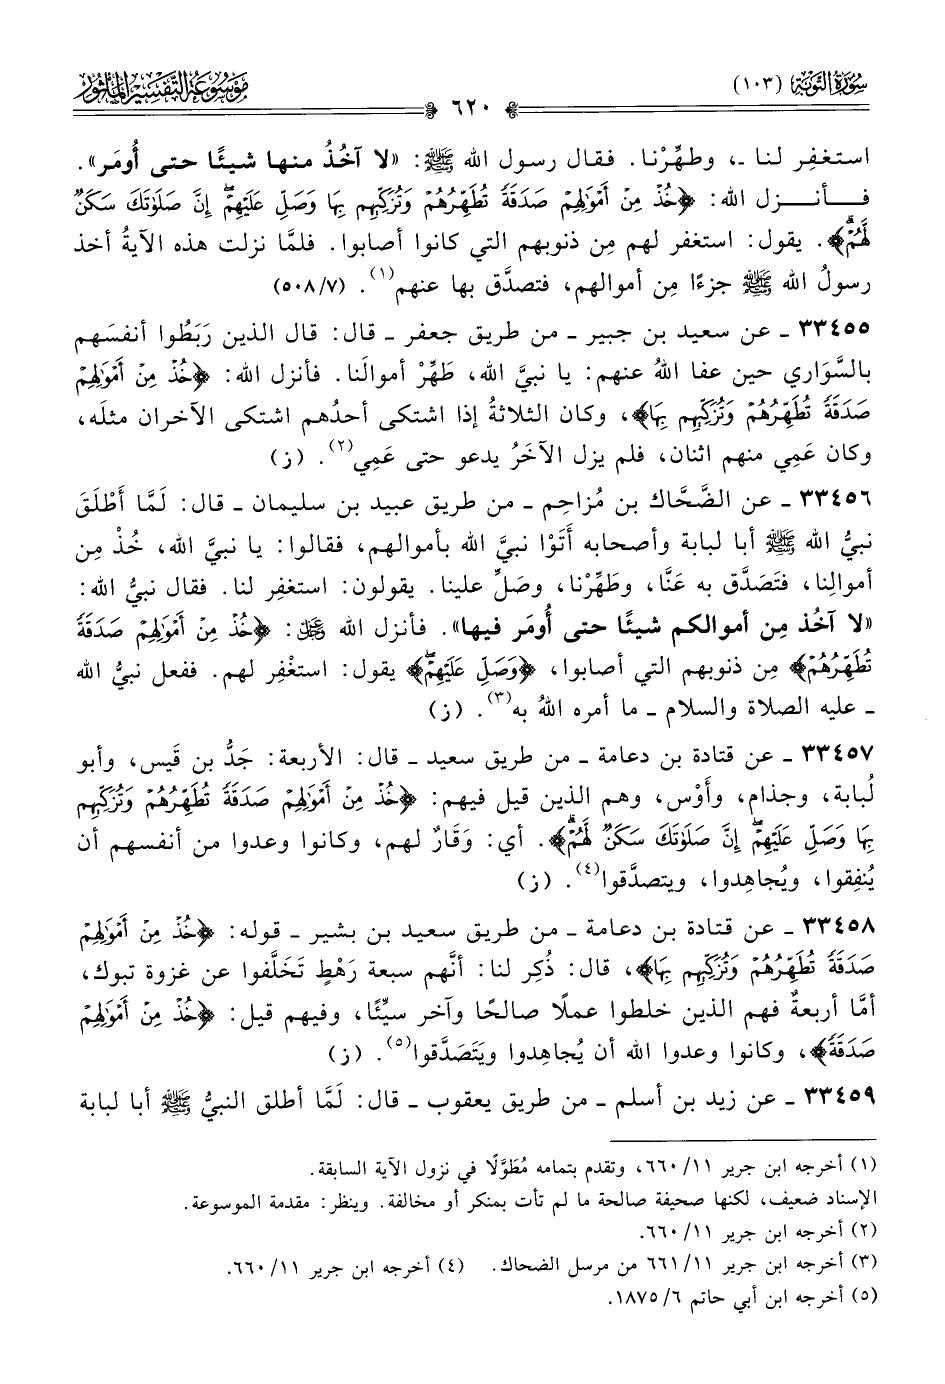 سُورَةُ التَّوْبَةِ (١٠٣)
مَوْسُوعَةُ التَّفْسِيرِ المَأْثُورِ
٦٢٠
استغفِر لنا ـ، وطهِّرْنا. فقال رسول الله ﷺ: «لا آخُذُ منها شيئًا حتى أُومَر».
فـأنـزل الله: ﴿خُذْ مِنْ أَمْوَٰلِهِمْ صَدَقَةً تُطَهِّرُهُمْ وَتُزَكِّيهِم بِهَا وَصَلِّ عَلَيْهِمْۖ إِنَّ صَلَوٰتَكَ سَكَنٌ
لَّهُمْۗ﴾. يقول: استغفر لهم مِن ذنوبهم التي كانوا أصابوا. فلمَّا نزلت هذه الآيةُ أخذ
رسولُ الله ﷺ جزءًا مِن أموالهم، فتصدَّق بها عنهم(١). (٥٠٨/٧)
٣٣٤٥٥ ـ عن سعيد بن جبير ـ من طريق جعفر ـ قال: قال الذين رَبَطُوا أنفسَهم
بالسَّوَاري حين عفا اللهُ عنهم: يا نبيَّ الله، طَهِّرْ أموالَنا. فأنزل الله: ﴿خُذْ مِنْ أَمْوَٰلِهِمْ
صَدَقَةً تُطَهِّرُهُمْ وَتُزَكِّيهِم بِهَا﴾، وكان الثلاثةُ إذا اشتكى أحدُهم اشتكى الآخران مثلَه،
وكان عَمِي منهم اثنان، فلم يزل الآخَرُ يدعو حتى عَمِي(٢). (ز)
٣٣٤٥٦ ـ عن الضَّحَّاك بن مُزاحِم ـ من طريق عبيد بن سليمان ـ قال: لَمَّا أَطْلَقَ
نبيُّ الله ﷺ أبا لبابة وأصحابه أَتَوْا نبيَّ الله بأموالهم، فقالوا: يا نبيَّ الله، خُذْ مِن
أموالِنا، فتَصَدَّق به عَنَّا، وطَهِّرْنا، وصَلِّ علينا. يقولون: استغفِر لنا. فقال نبيُّ الله:
«لا آخُذ مِن أموالكم شيئًا حتى أُومَر فيها». فأنزل الله ﷻ: ﴿خُذْ مِنْ أَمْوَٰلِهِمْ صَدَقَةً
تُطَهِّرُهُمْ﴾ مِن ذنوبهم التي أصابوا، ﴿وَصَلِّ عَلَيْهِمْۖ﴾ يقول: استغْفِر لهم. ففعل نبيُّ الله
ـ عليه الصلاة والسلام ـ ما أمره اللهُ به(٣). (ز)
٣٣٤٥٧ ـ عن قتادة بن دعامة ـ من طريق سعيد ـ قال: الأربعة: جَدُّ بن قَيس، وأبو
لُبابة، وجذام، وأَوْس، وهم الذين قيل فيهم: ﴿خُذْ مِنْ أَمْوَٰلِهِمْ صَدَقَةً تُطَهِّرُهُمْ وَتُزَكِّيهِم
بِهَا وَصَلِّ عَلَيْهِمْۖ إِنَّ صَلَوٰتَكَ سَكَنٌ لَّهُمْۗ﴾. أي: وَقَارٌ لهم، وكانوا وعدوا من أنفسهم أن
يُنفِقوا، ويُجاهِدوا، ويتصدَّقوا(٤). (ز)
٣٣٤٥٨ ـ عن قتادة بن دعامة ـ من طريق سعيد بن بشير ـ قوله: ﴿خُذْ مِنْ أَمْوَٰلِهِمْ
صَدَقَةً تُطَهِّرُهُمْ وَتُزَكِّيهِم بِهَا﴾، قال: ذُكِر لنا: أنَّهم سبعة رَهْطٍ تَخَلَّفوا عن غزوة تبوك،
أمَّا أربعةٌ فهم الذين خلطوا عملًا صالحًا وآخر سيِّئًا، وفيهم قيل: ﴿خُذْ مِنْ أَمْوَٰلِهِمْ
صَدَقَةً﴾، وكانوا وعدوا الله أن يُجاهِدوا ويَتَصدَّقوا(٥). (ز)
٣٣٤٥٩ ـ عن زيد بن أسلم ـ من طريق يعقوب ـ قال: لَمَّا أطلق النبيُّ ﷺ أبا لبابة
(١) أخرجه ابن جرير ١١/ ٦٦٠، وتقدم بتمامه مُطَوَّلًا في نزول الآية السابقة.
الإسناد ضعيف، لكنها صحيفة صالحة ما لم تأت بمنكر أو مخالفة. وينظر: مقدمة الموسوعة.
(٢) أخرجه ابن جرير ١١/ ٦٦٠.
(٣) أخرجه ابن جرير ١١/ ٦٦١ من مرسل الضحاك. (٤) أخرجه ابن جرير ١١/ ٦٦٠.
(٥) أخرجه ابن أبي حاتم ٦/ ١٨٧٥.